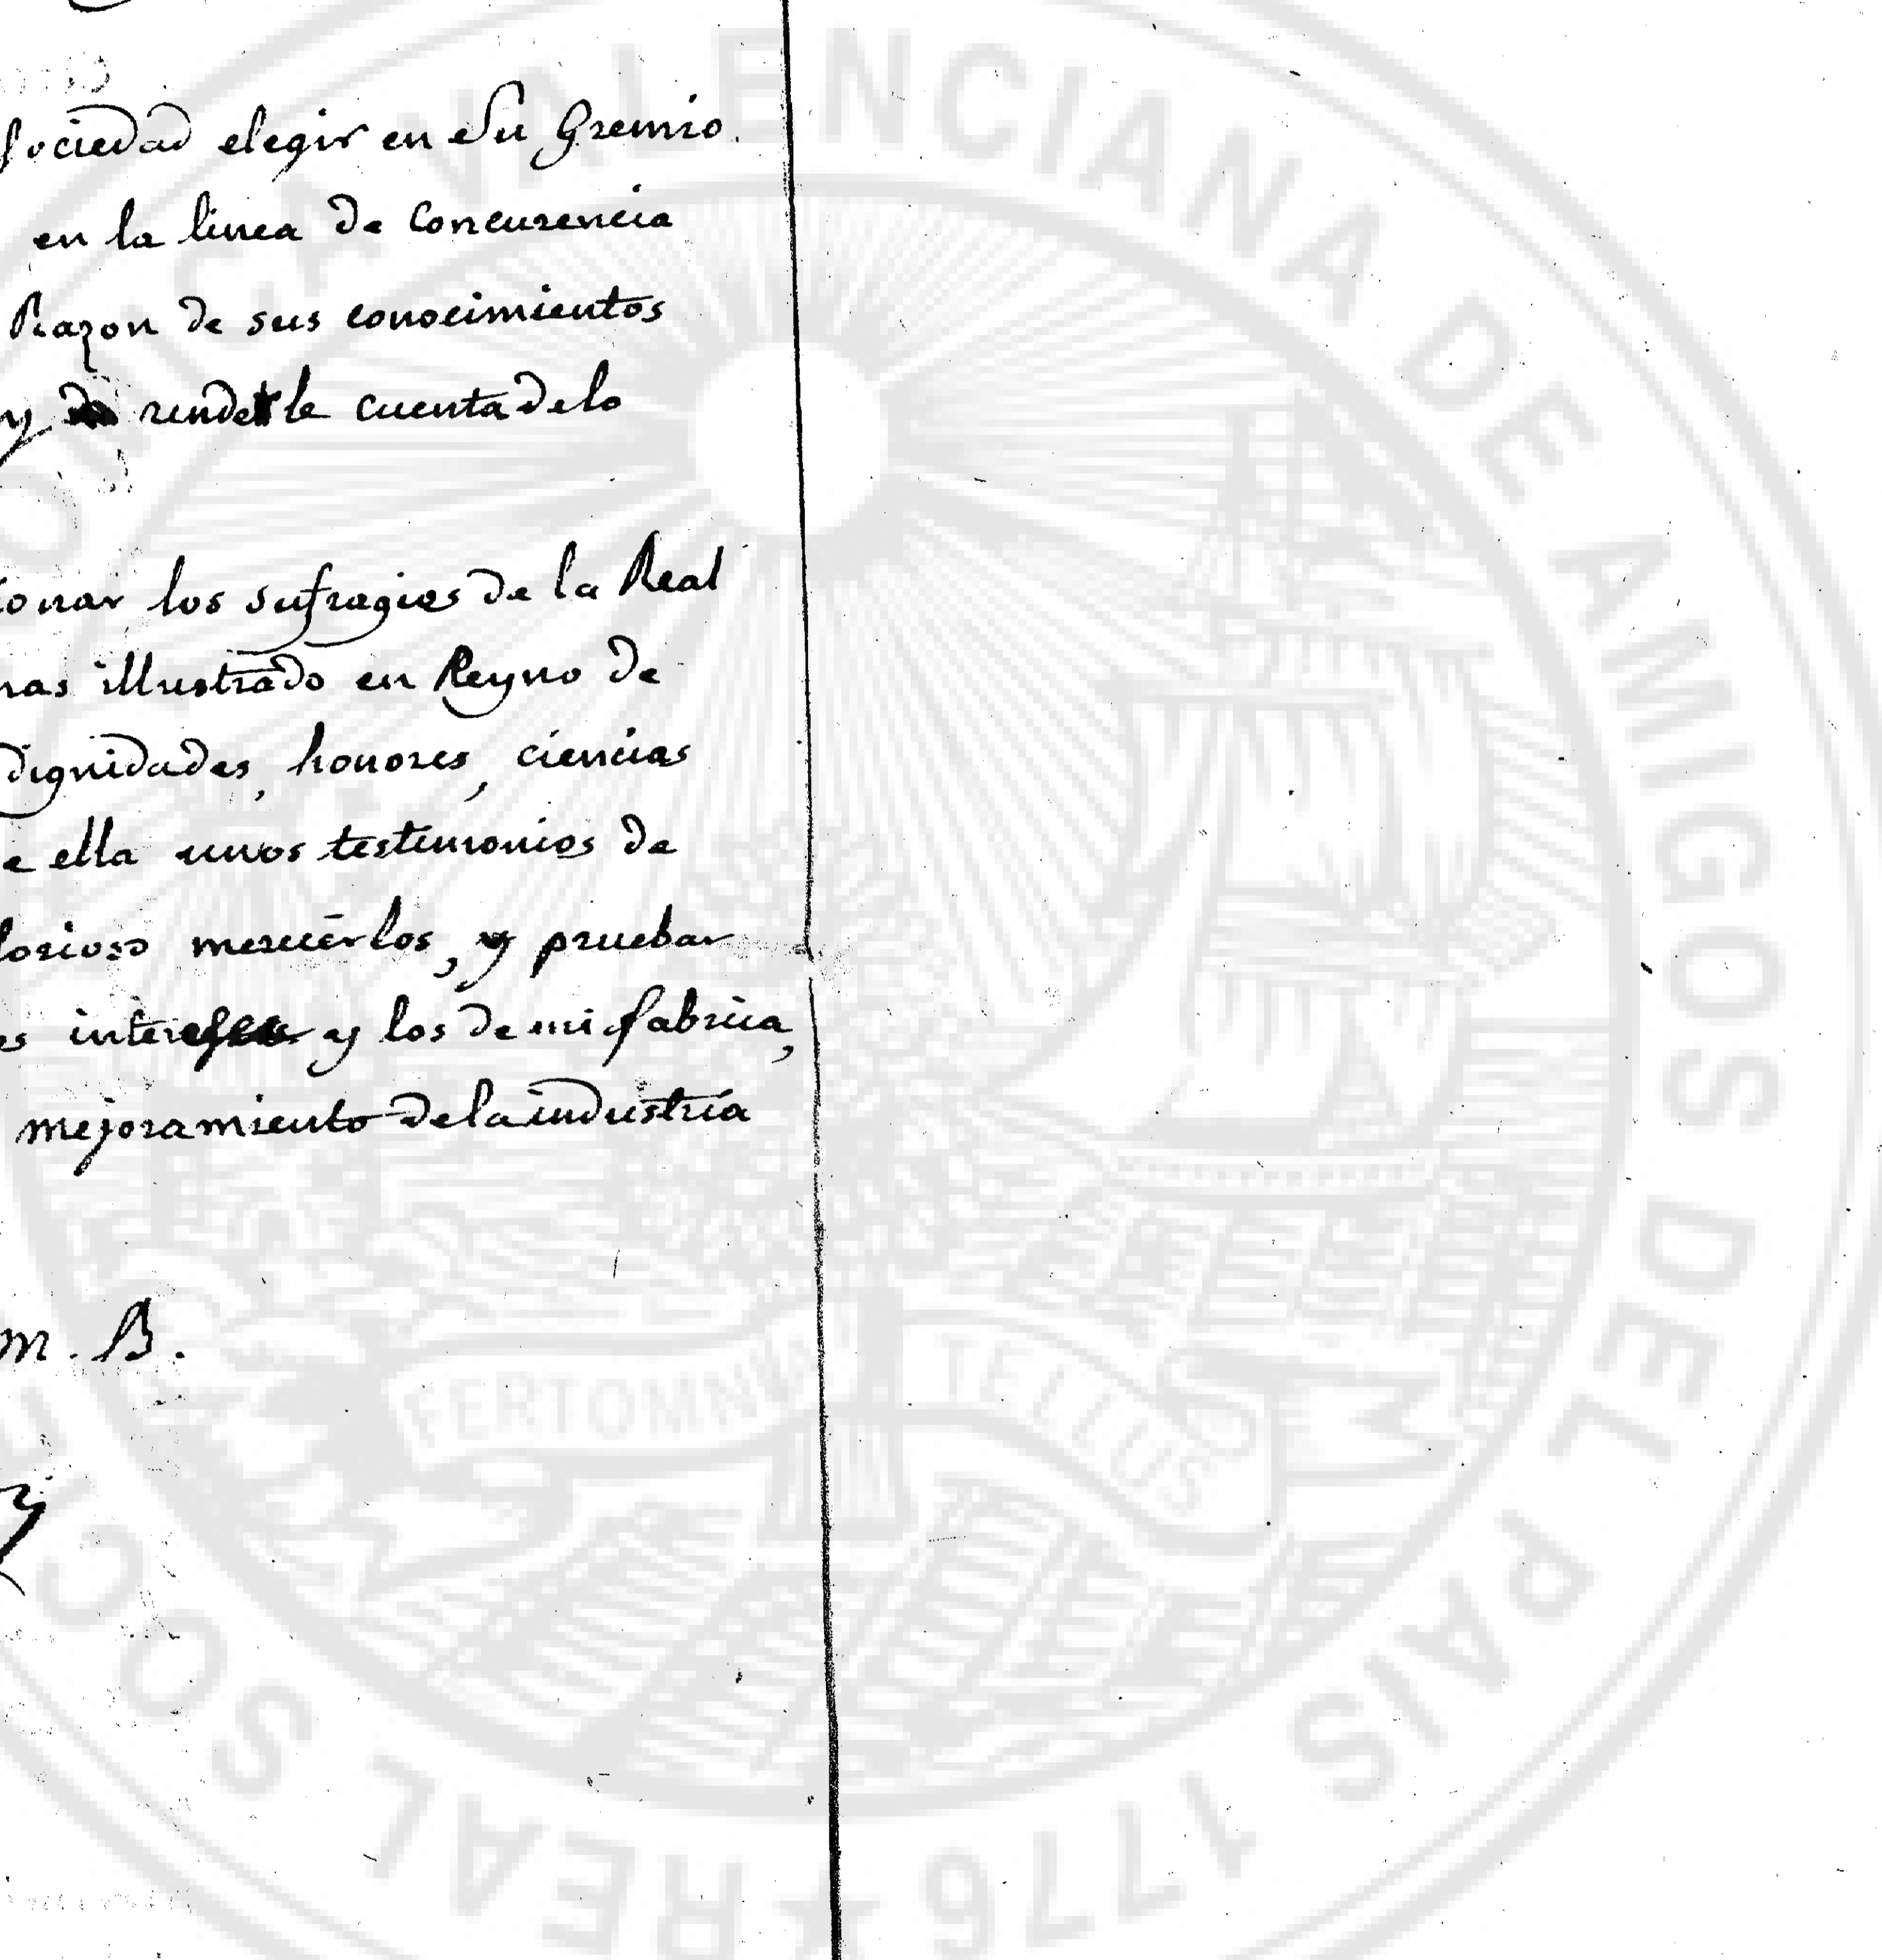 Sociedad elegir en Su Gremio.
en la linea de Concurencia
Razon de sus conocimientos
y renderle cuenta delo
ionar los sufragios de la Real
mas illustrado en Reyno de
dignidades, honores, ciencias
e ella unos testimonios de
lorioso mereserlos, y pruebar
es intereses y los de mi fabrica,
mejoramiento dela industria
m. B.
REAL SOCI ECONOMICA VALENCIANA DE AMIGOS DEL PAIS 1776
FERT OMNIA TELLUS